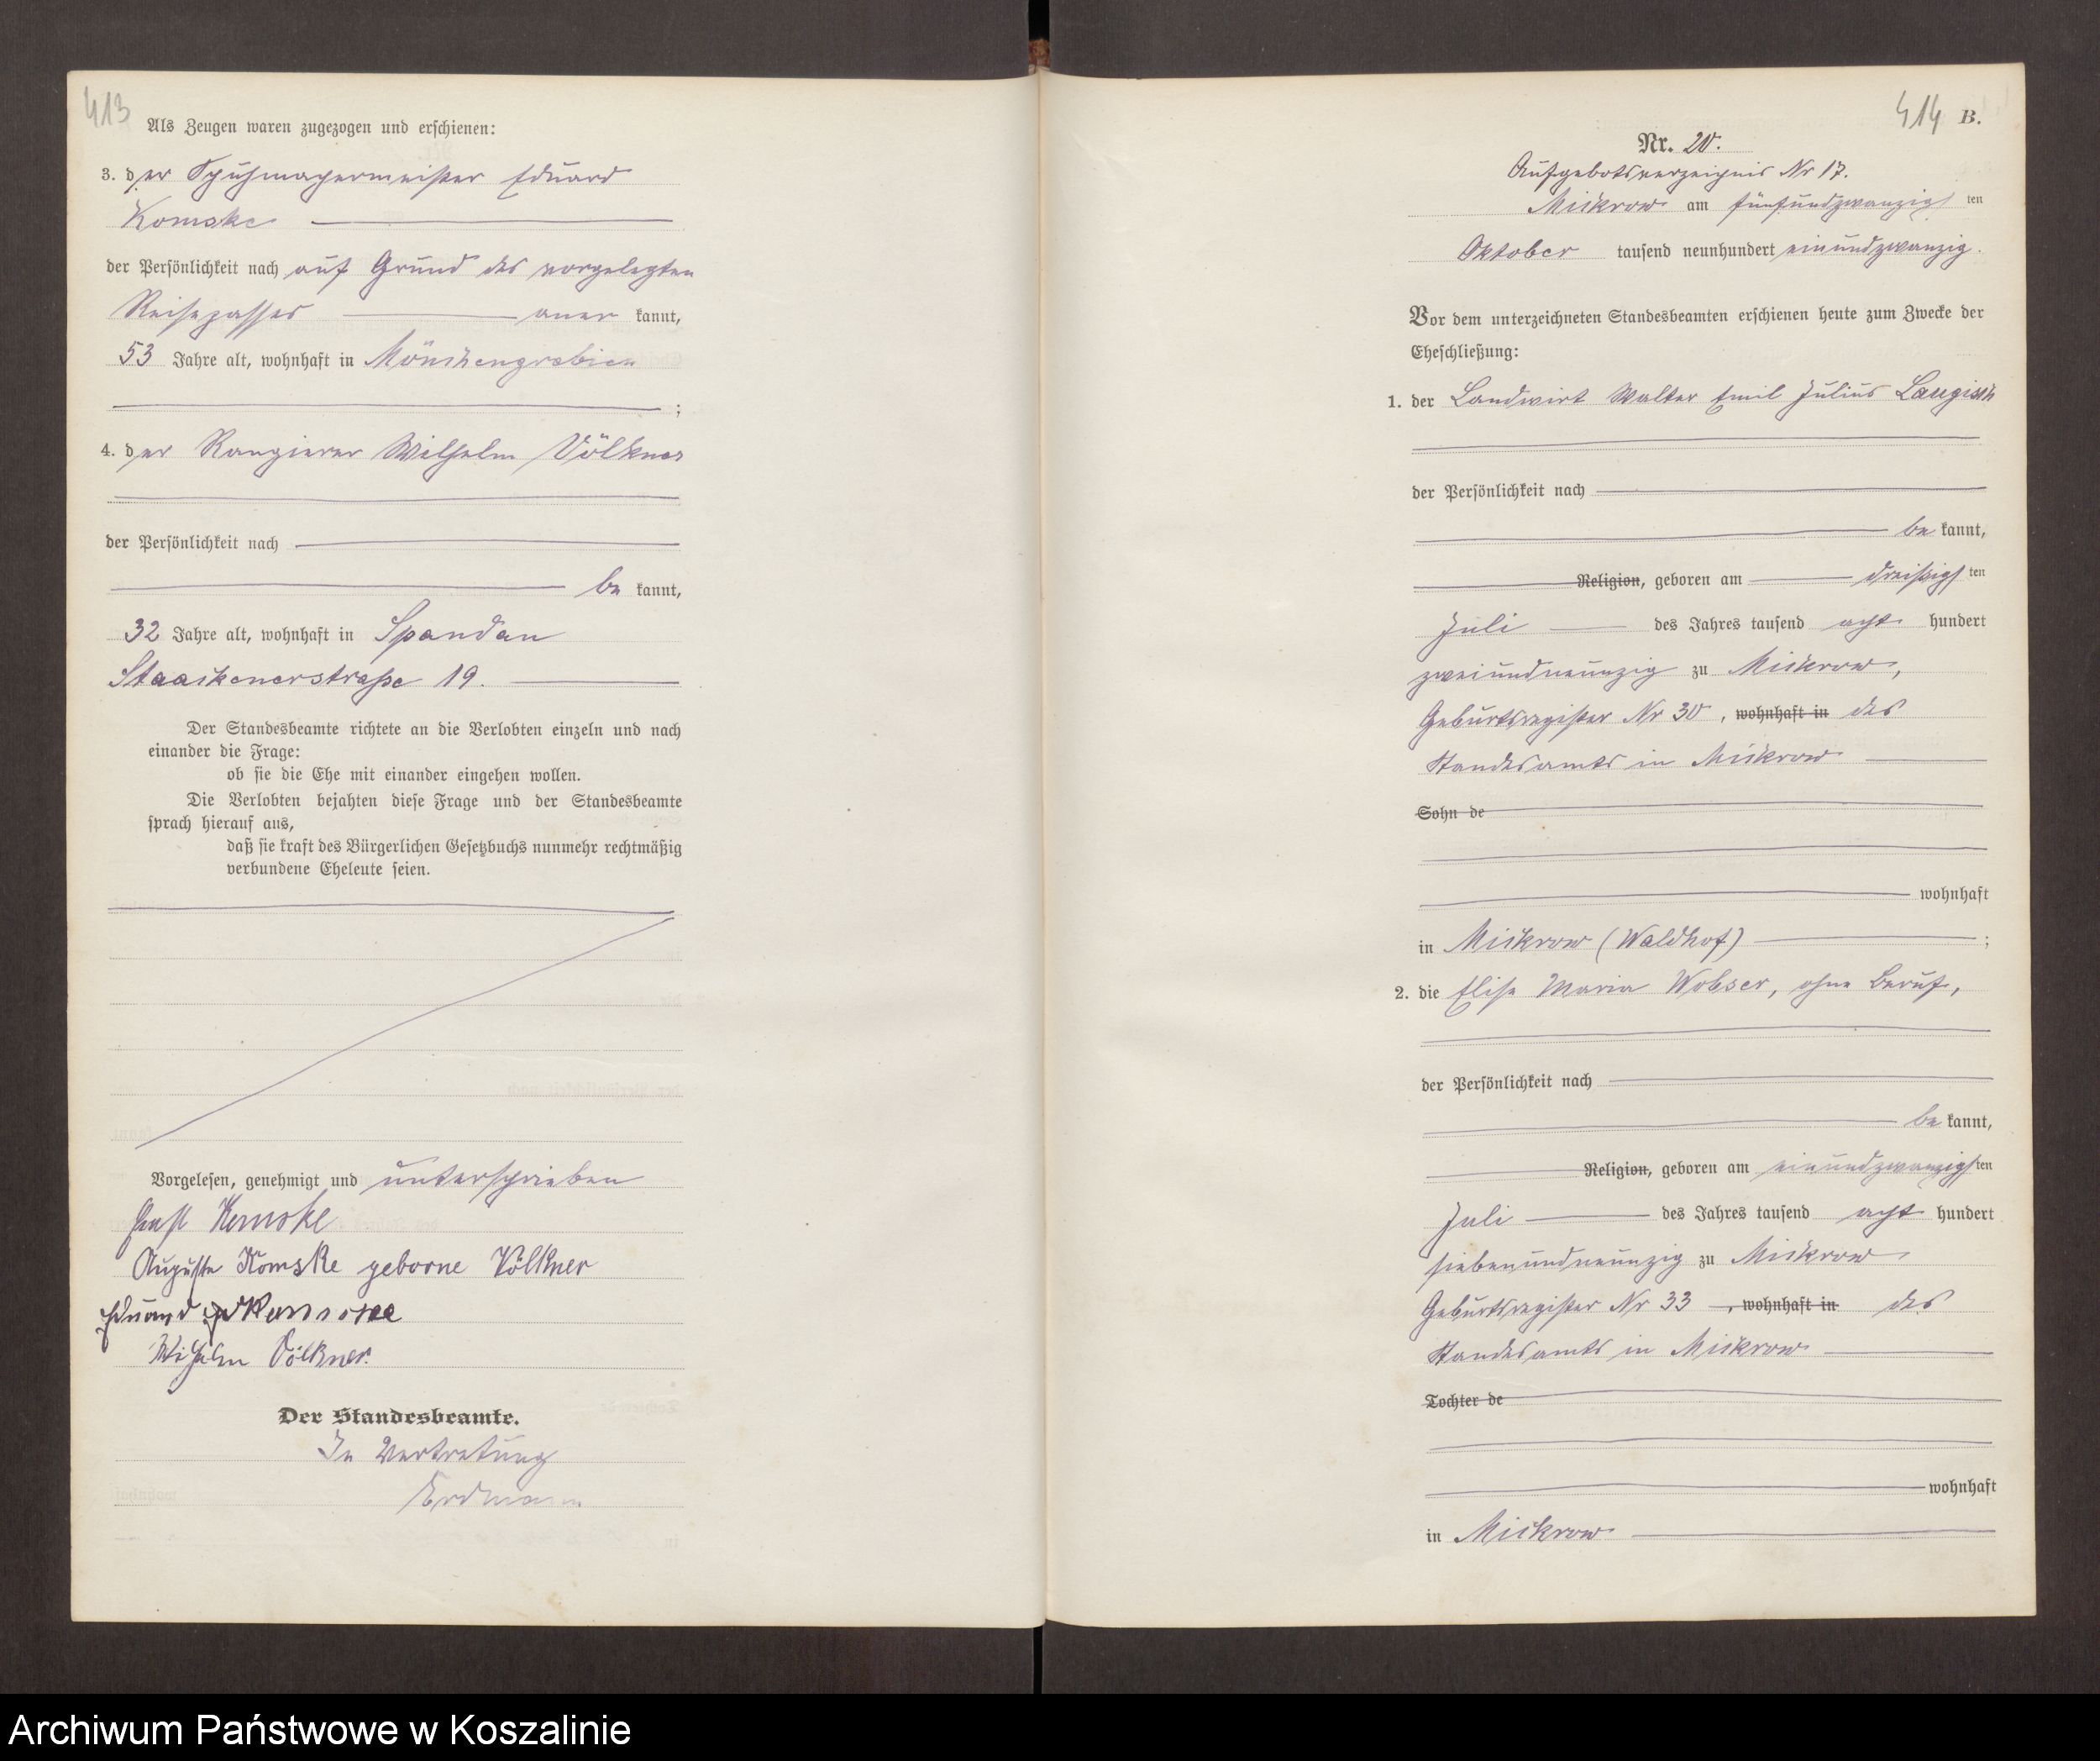 413
Als Zeugen waren zugezogen und erschienen:
3. der Schuhmachermeister Eduard
Komske
der Persönlichkeit nach auf Grund des vorgelegten
Reisepasses aner kannt,
53 Jahre alt, wohnhaft in Mönchengrebien
;
4. der Rangierer Wilhelm Völkner
der Persönlichkeit nach
be kannt,
32 Jahre alt, wohnhaft in Spandau
Staackenerstraße 19.
Der Standesbeamte richtete an die Verlobten einzeln und nach
einander die Frage:
ob sie die Ehe mit einander eingehen wollen.
Die Verlobten bejahten diese Frage und der Standesbeamte
sprach hierauf aus,
daß sie kraft des Bürgerlichen Gesetzbuchs nunmehr rechtmäßig
verbundene Eheleute seien.
Vorgelesen, genehmigt und unterschrieben
Ernst Komske
Auguste Komske geborne Völkner
Eduard Komske
Wilhelm Völkner.
Der Standesbeamte.
In Vertretung
Erdmann
414 B.
Nr. 20.
Aufgebotsverzeichnis Nr 17.
Mickrow am fünfundzwanzigsten
Oktober tausend neunhundert einundzwanzig.
Vor dem unterzeichneten Standesbeamten erschienen heute zum Zwecke der
Eheschließung:
1. der Landwirt Walter Emil Julius
der Persönlichkeit nach
be kannt,
Religion, geboren am dreißigsten
Juli des Jahres tausend acht hundert
zweiundneunzig zu Mickrow,
Geburtsregister Nr 30, wohnhaft in des
Standesamts in Mickrow
Sohn de
wohnhaft
in Mickrow (Waldhof) ;
2. die Elise Maria Wobser, ohne Beruf,
der Persönlichkeit nach
be kannt,
Religion, geboren am einundzwanzigsten
Juli des Jahres tausend acht hundert
siebenundneunzig zu Mickrow
Geburtsregister Nr 33, wohnhaft in des
Standesamts in Mickrow
Tochter de
wohnhaft
in Mickrow
Archiwum Państwowe w Koszalinie